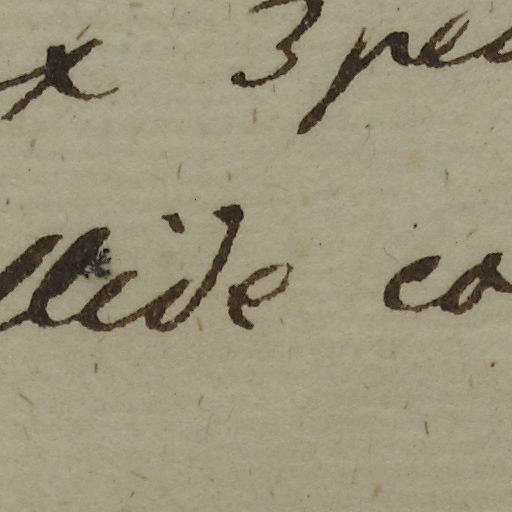 x 3 pe
llide co